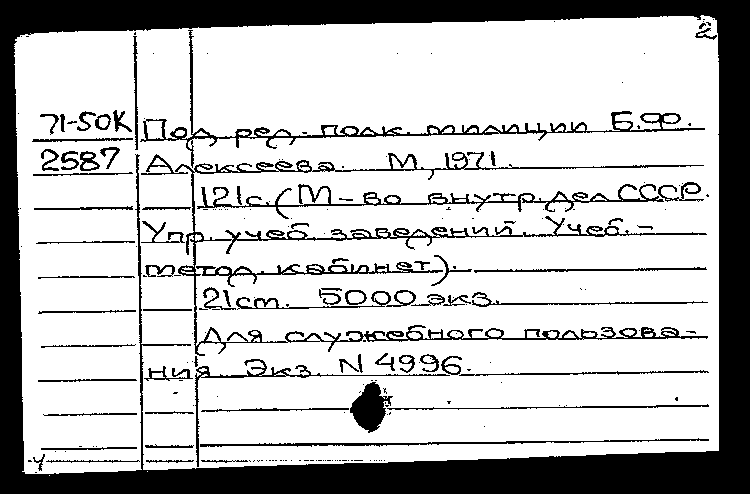 2
71-50К Под ред. полк. милиции Б.Ф.
2587 Алексеева. М., 1971.
121с. (М-во внутр. дел СССР.
Упр. учеб. заведений. Учеб.-
метод. кабинет).
21см. 5000 экз.
Для служебного пользова-
ния. Экз. N 4996.